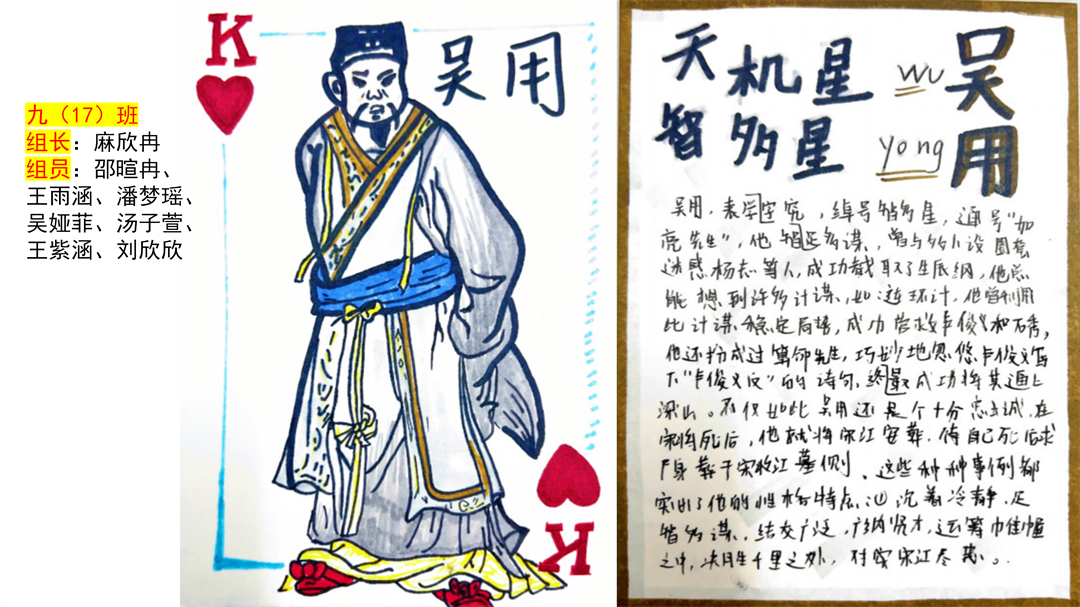 九（17）班
组长：麻欣冉
组员：邵暄冉、
王雨涵、潘梦瑶、
吴娅菲、汤子萱、
王紫涵、刘欣欣
K
吴用
K
天机星
智多星
wu
yong
吴用
吴用，表字学究，绰号智多星，道号“加
亮先生”，他足智多谋，曾与多人设圈套
迷惑杨志等人，成功截取了生辰纲，他总
能想到许多计谋，如连环计，他曾利用
此计谋稳定局势，成功营救卢俊义和石秀，
他还扮成过算命先生，巧妙地忽悠卢俊义写
下“卢俊义反”的诗句，终最成功将其逼上
梁山。不仅如此吴用还是个十分忠诚，在
宋江死后，他就将宋江安葬，待自己死后
葬于宋江墓侧、这些种种事例都
突出了他的性格特点，沉着冷静，足
智多谋，结交广泛，广纳贤才，运筹帷幄
之中，决胜千里之外，对宋江尽忠。